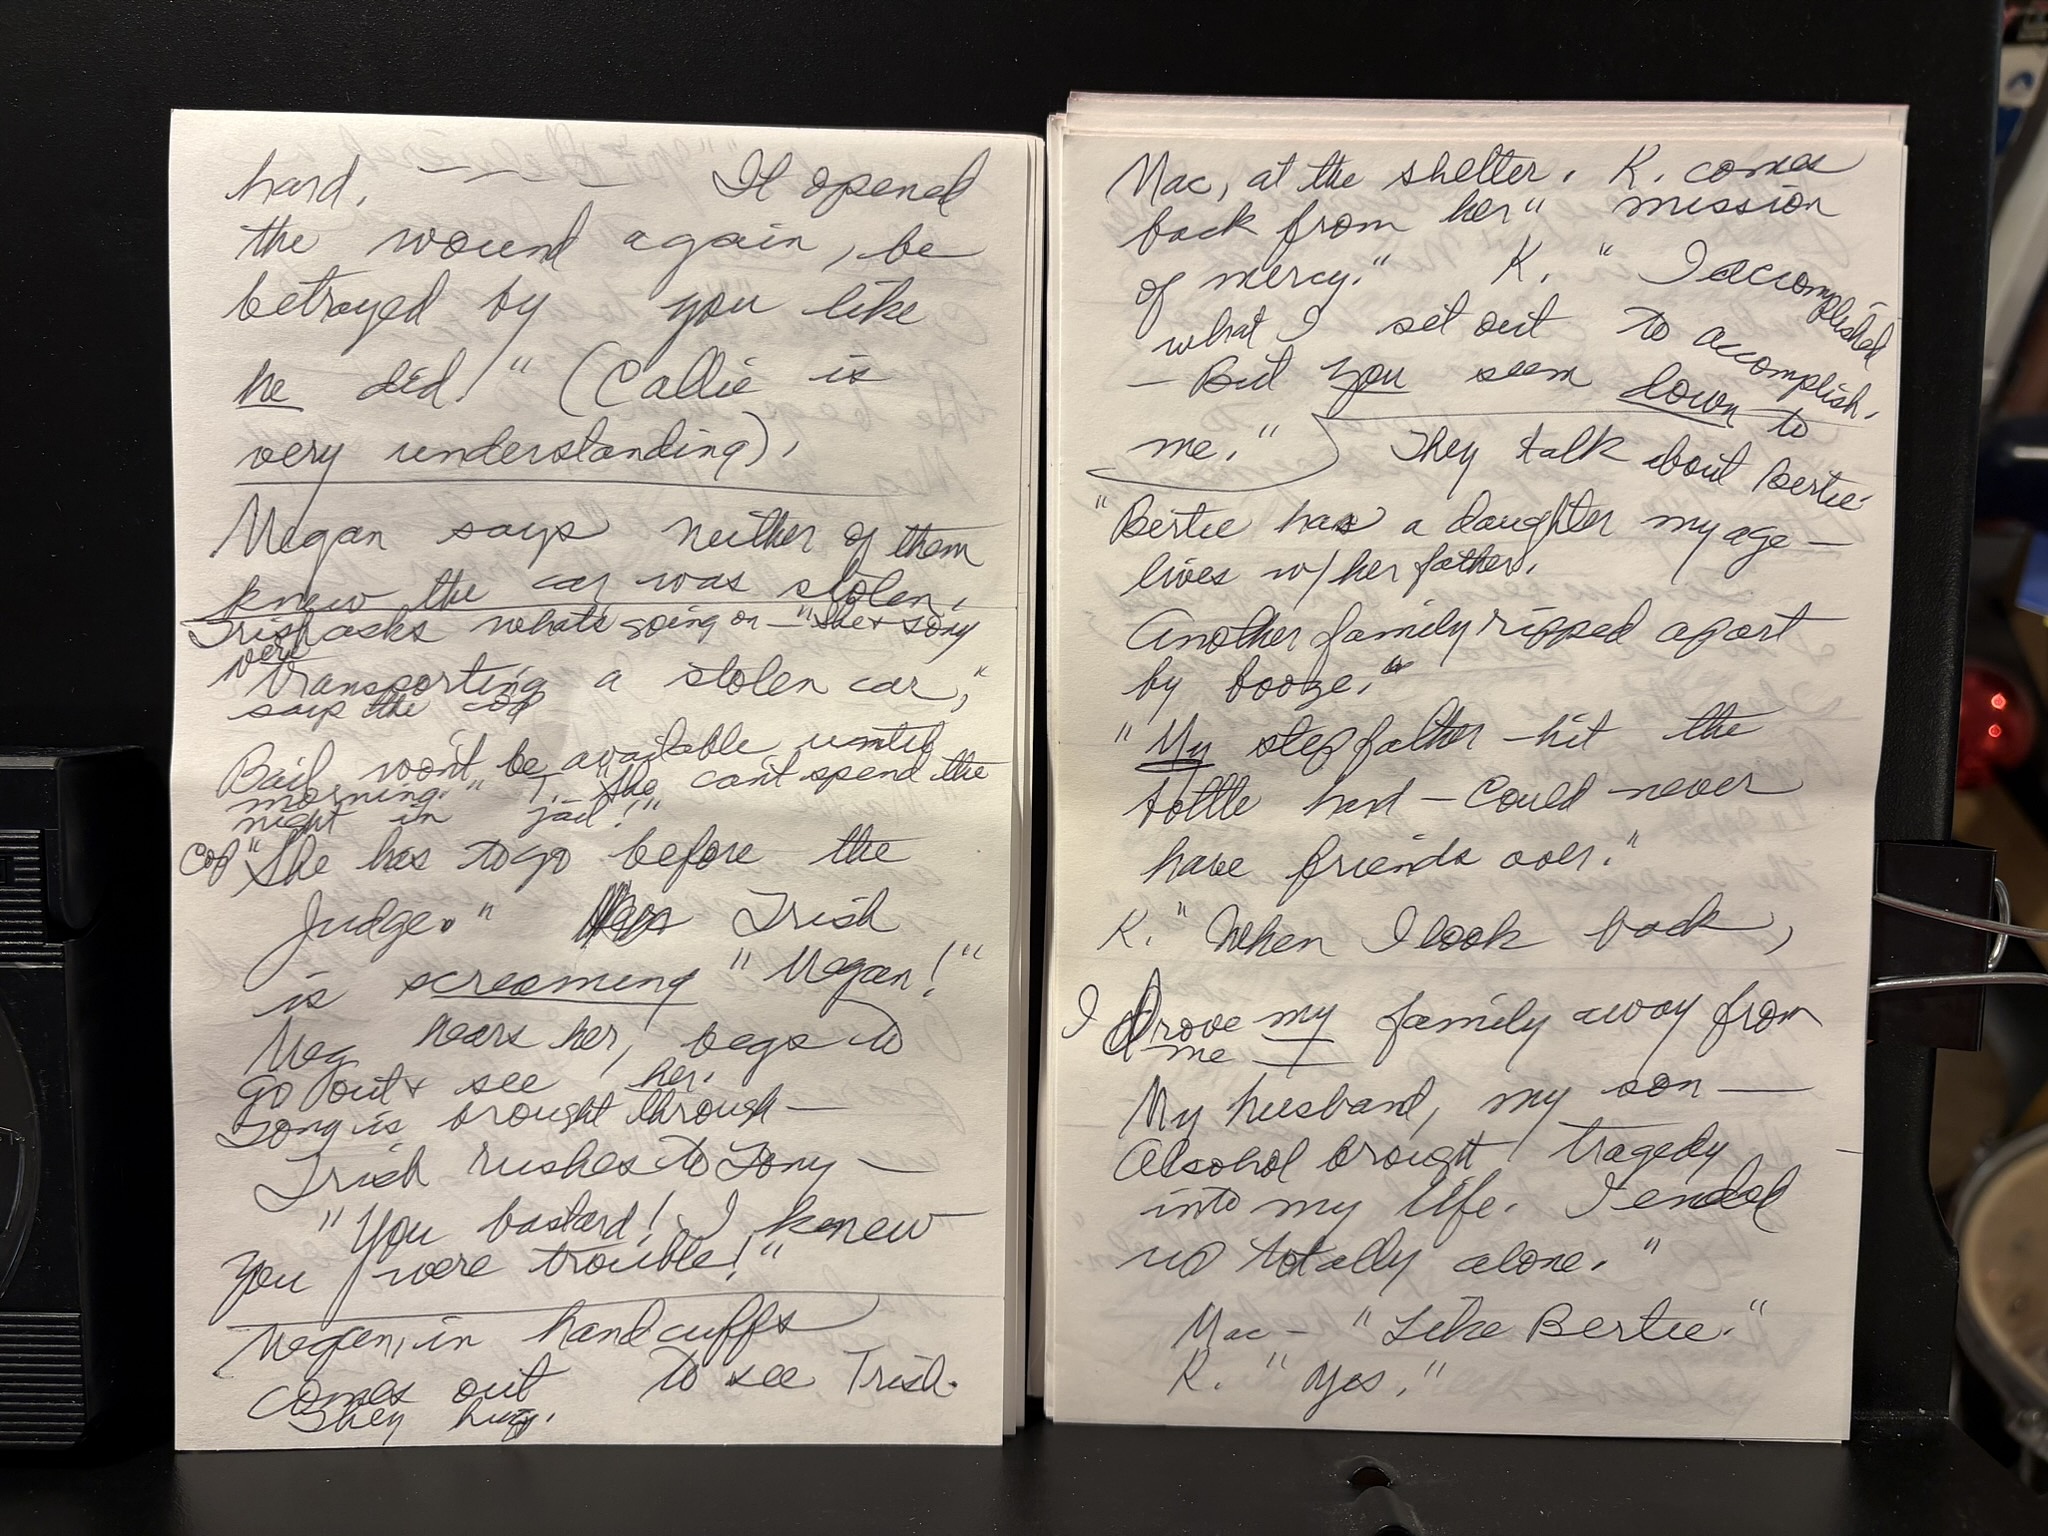 hard. — — — It opened
the wound again, be
betrayed by you like
he did!" (Callie is
very understanding).
Megan says neither of them
knew the car was stolen.
Trish asks whats going on — "She & Tony
were
transporting a stolen car,"
says the cop
Bail won't be available until
morning." T. "She can't spend the
night in jail!"
Cop "She has to go before the
Judge." Trish
is screaming "Megan!"
Meg hears her, begs to
go out & see her.
Tony is brought through —
Trish rushes to Tony —
"You bastard! I knew
you were trouble!"
Megan, in handcuffs
comes out to see Trish.
They hug.
Mac, at the shelter. K. comes
back from her "mission
of mercy." K. "I accomplished
what I set out to accomplish.
— But you seem down to
me." They talk about Bertie
"Bertie has a daughter my age —
lives w/ her father.
Another family ripped apart
by booze."
"My stepfather — hit the
bottle hard — Could never
have friends over."
K. "When I look back,
I drove my family away from
me —
My husband, my son —
Alcohol brought tragedy
into my life. I ended
up totally alone."
Mac — "Like Bertie."
K. "Yes."